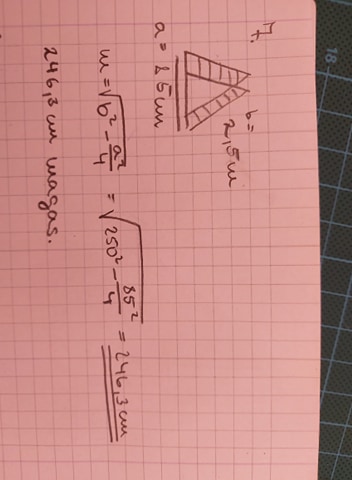 7.
b =
2,5 m
a = 85 cm
m = √(b² - a²/4) = √(250² - 85²/4) = 246,3 cm
246,3 cm magas.
18